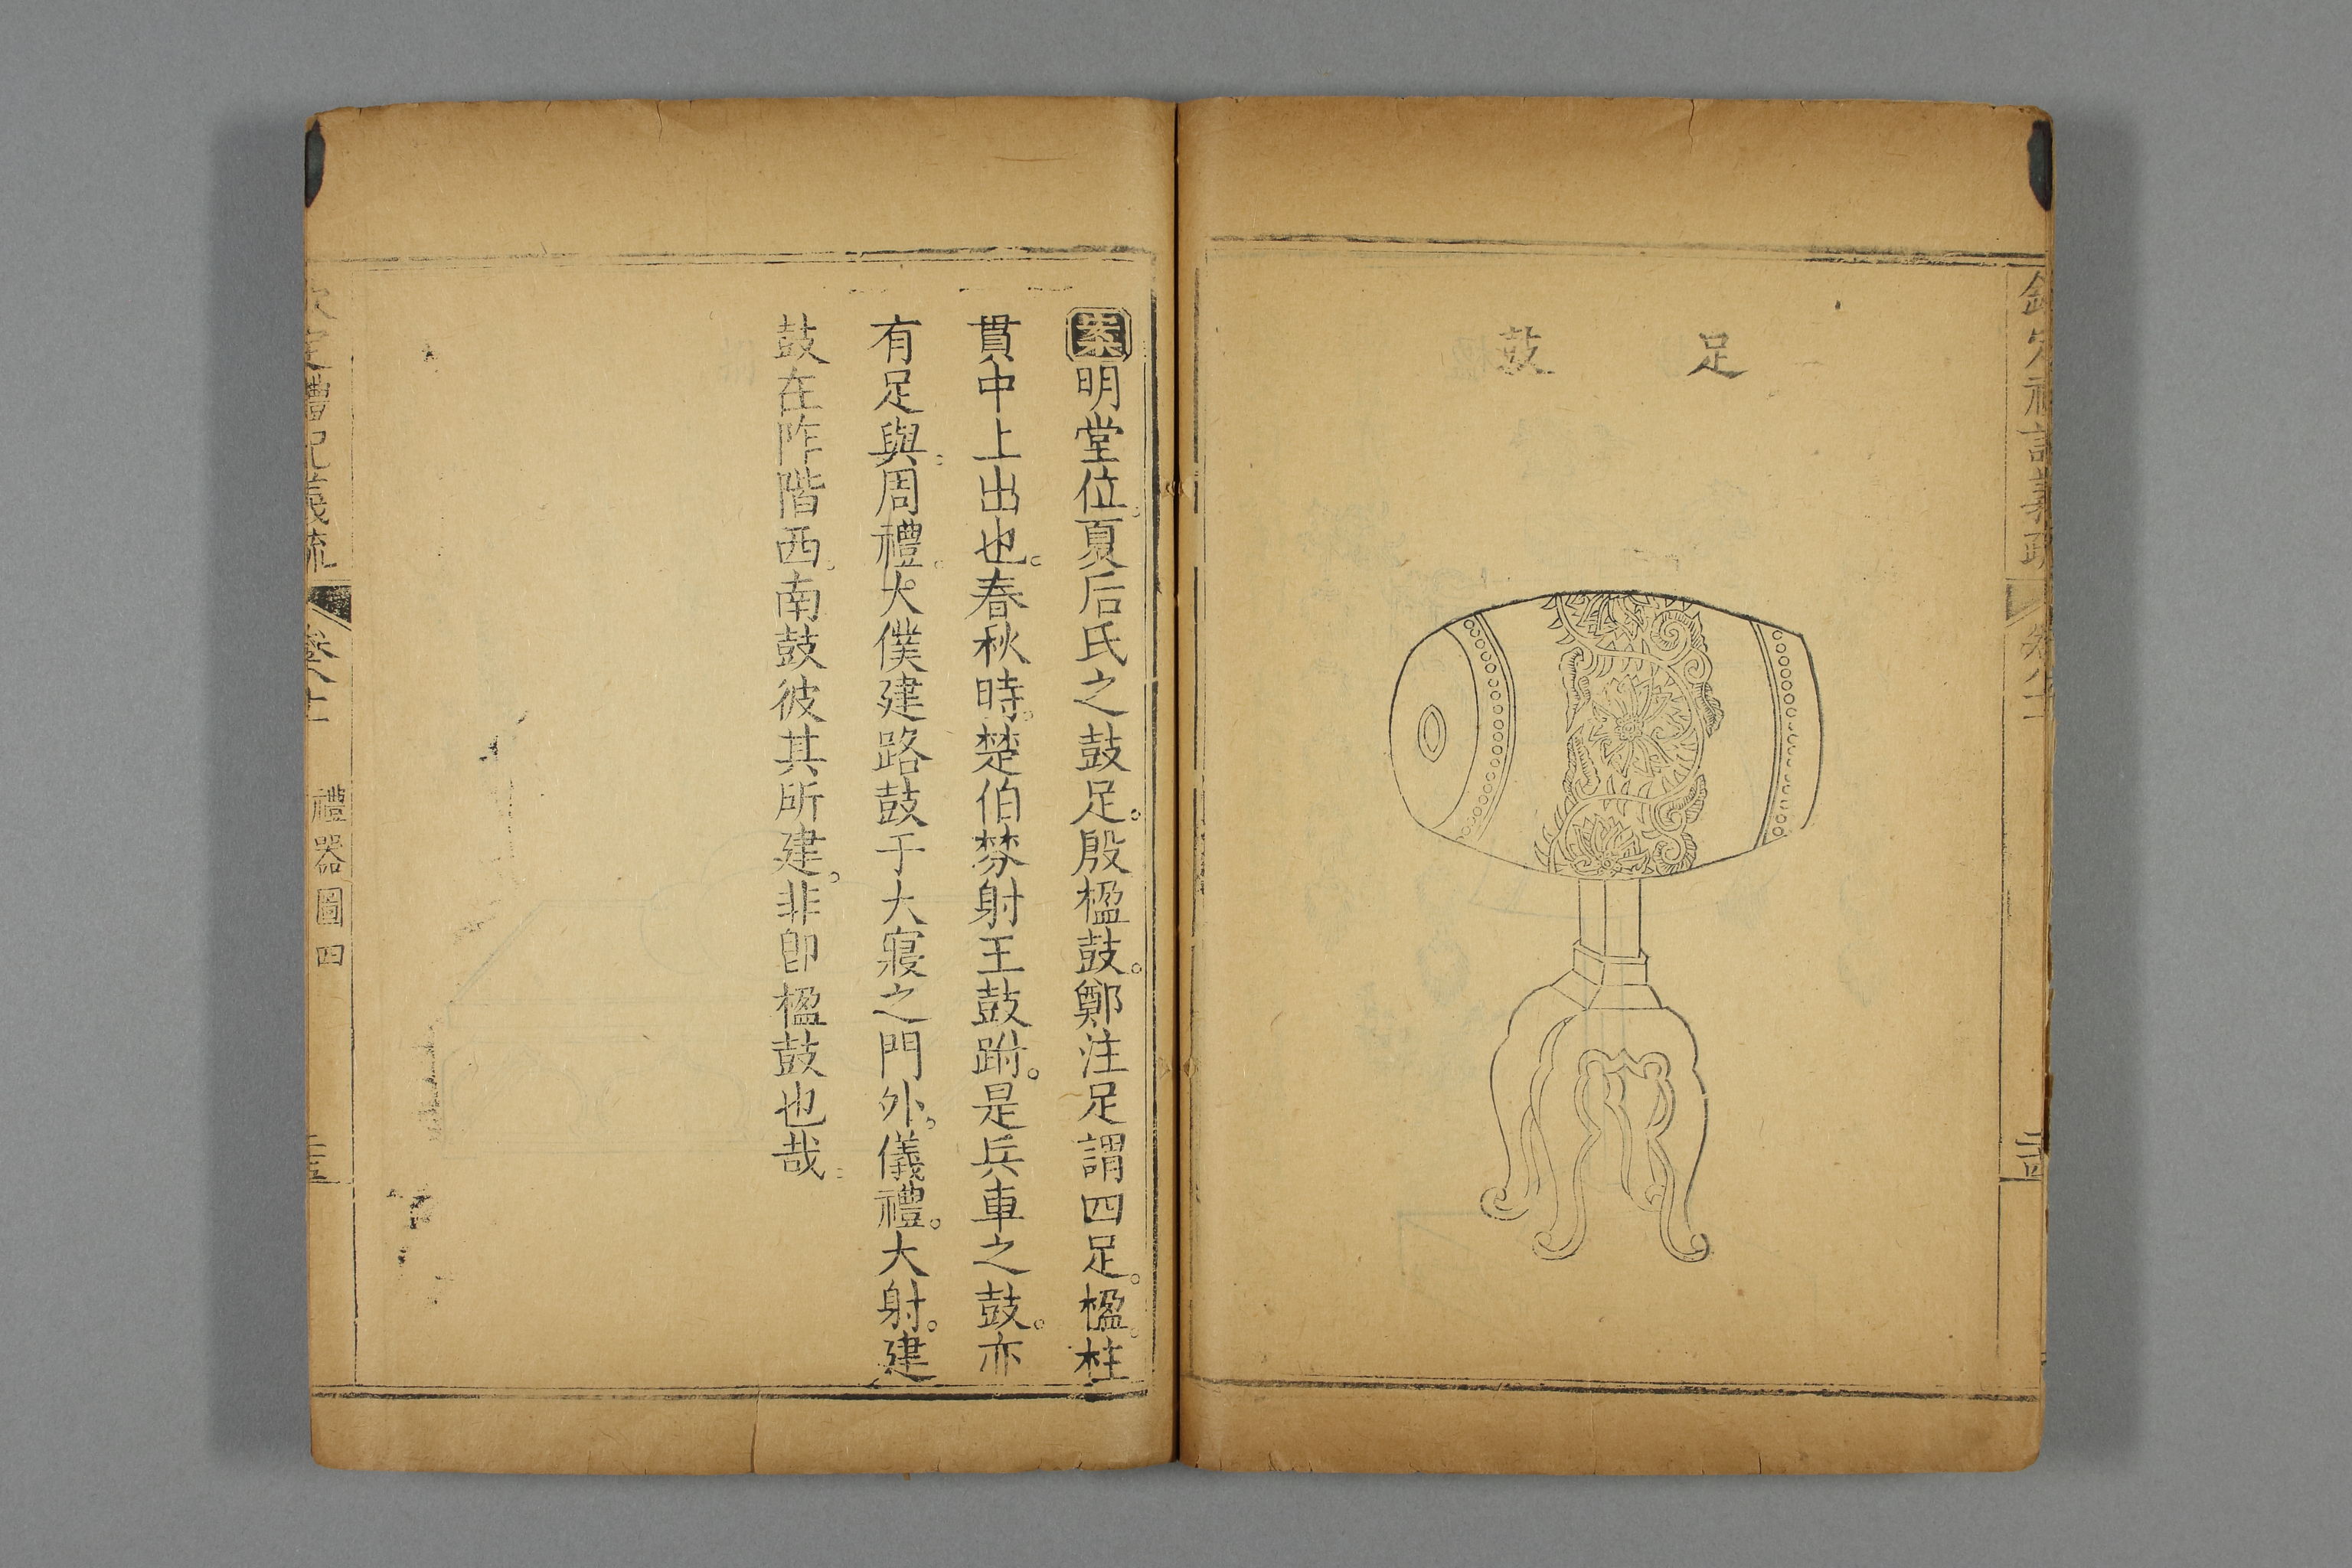 欽定禮記義疏 卷八十
足鼓
案明堂位。夏后氏之鼓足。殷楹鼓。鄭注足謂四足。楹。柱
貫中上出也。春秋時。楚伯棼射王鼓跗。是兵車之鼓。亦
有足與。周禮。大僕建路鼓于大寢之門外。儀禮。大射。建
鼓在阼階西。南鼓彼其所建。非卽楹鼓也哉。
欽定禮記義疏 卷八十 禮器圖四